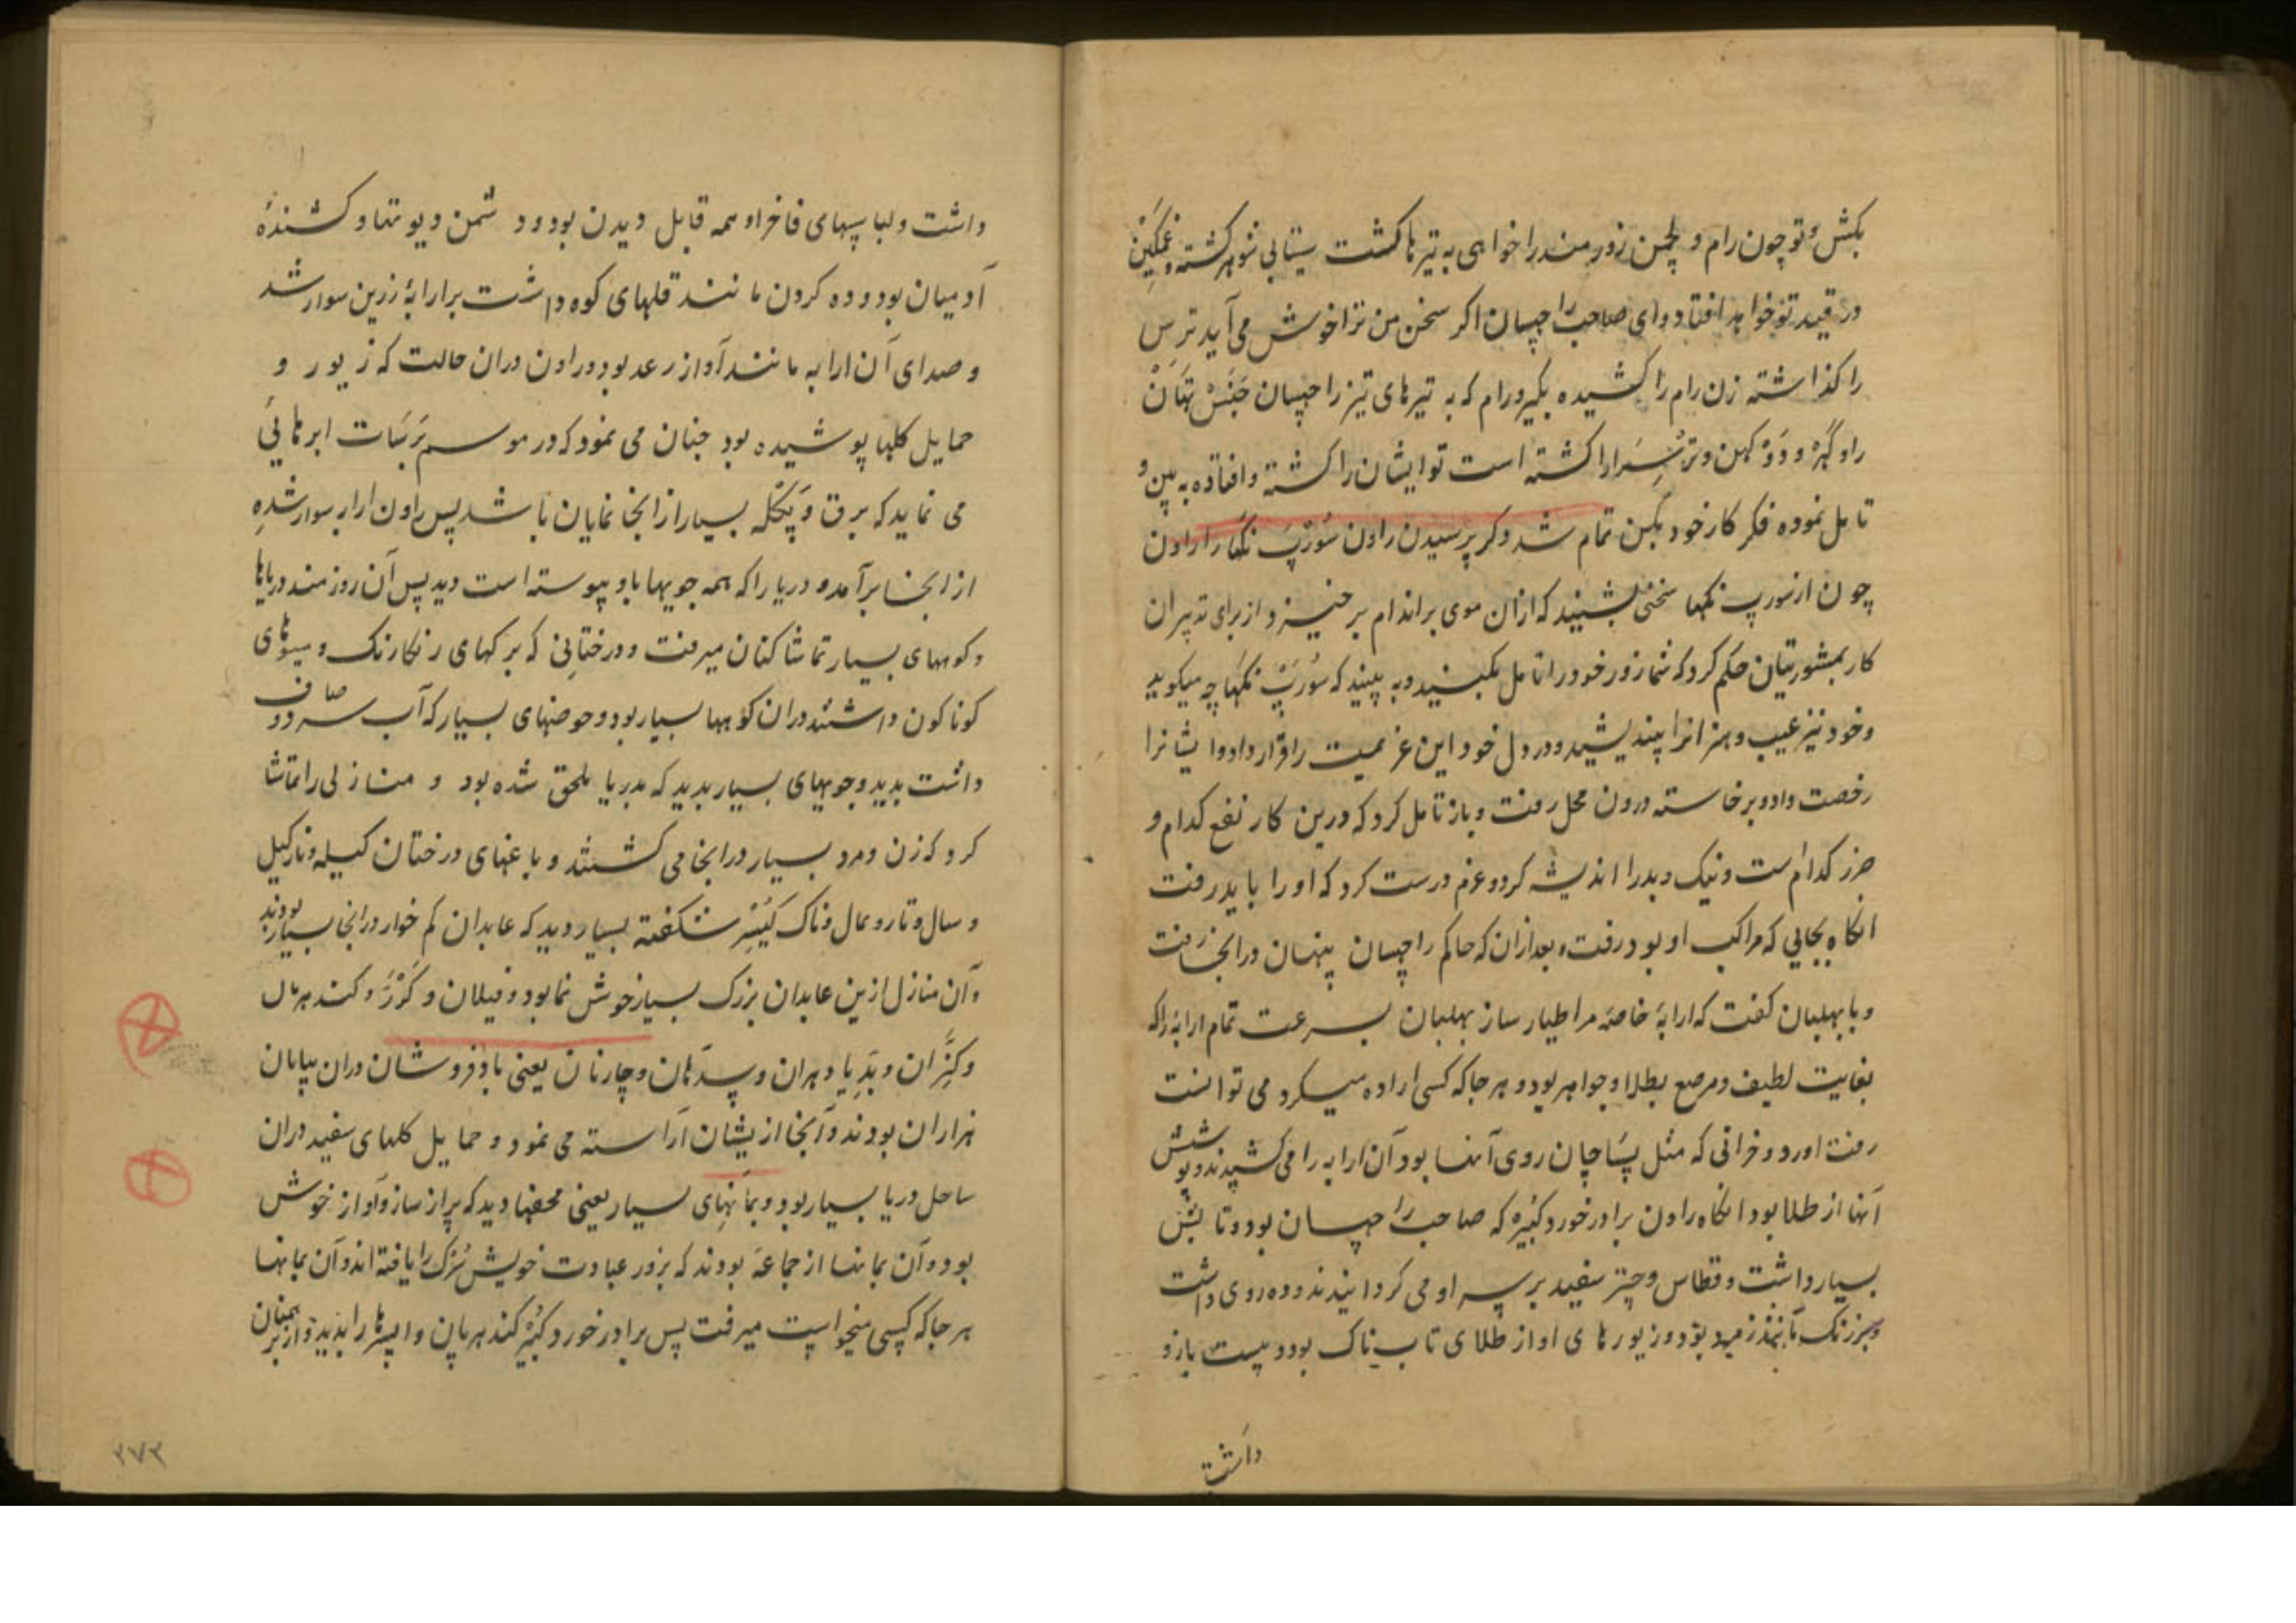 بکش و تو چون رام و لچمن زورمند را خواهی به تیرها کشت سیتا بی شوهر گشته و غمگین
در قید تو خواهد افتاد و ای صاحب راچسان اگر سخن من ترا خوش می آید ترس
را گذاشته زن رام را کشیده بگیر و رام که به تیرهای تیز راچسان جنستهان
را و کهر و دوکهن و ترسرا را کشته است تو ایشان را کشته و افتاده به بین و
تامل نموده فکر کار خود بکن تمام شد و کر پرسیدن راون سورپ نکها را راون
چون از سورپ نکها سخنی بشنید که ازان موی بر اندام برخیزد از برای تدبیر آن
کار بمشورتیان حکم کرد که شما زور خود را تامل بکنید و به بینید که سورپ نکها چه میگوید
و خود نیز عیب و هنر آنرا بیندیشید و در دل خود این عزیمت را قرار داد و ایشانرا
رخصت داد و برخاسته درون محل رفت و باز تامل کرد که درین کار نفع کدام و
ضرر کدام است و نیک و بد را اندیشه کرد و عزم درست کرد که او را باید رفت
آنگاه بجایی که مراکب او بود رفت و بعد ازان که حاکم راچسان پنهان در آنجا رفت
و با بهلبان گفت که ارابهٔ خاصه مرا طیار ساز بهلبان بسرعت تمام ارابهٔ را که
بغایت لطیف و مرصع بطلا و جواهر بود و هر جا که کسی اراده میکرد می توانست
رفت آورد و خرانی که مثل پساچان روی آنها بود آن ارابه را می کشیدند و پوشش
آنها از طلا بود آنگاه راون برادر خورد کبیر که صاحب راچسان بود و تابش
بسیار داشت و قطاس و چتر سفید بر سر او می گردانیدند و ده روی داشت
و برنگ مانند زمرد بود و زیورهای او از طلای تابناک بود و بیست بازو
داشت
داشت و لباسهای فاخر او همه قابل دیدن بود و دشمن دیوتها و کشندهٔ
آدمیان بود و ده گردن مانند قلهای کوه داشت بر ارابهٔ زرین سوار شد
و صدای آن ارابه مانند آواز رعد بود و راون دران حالت که زیور و
حمایل گلها پوشیده بود چنان می نمود که در موسم برسات ابرهائی
می نماید که برق و بگله بسیار از آنجا نمایان باشد پس راون ارابه سوار شده
از آنجا برآمده دریا را که همه جویها باو پیوسته است دید پس آن روزمند دریاها
و کوههای بسیار تماشا کنان میرفت و درختانی که برگهای رنگارنگ و میوهای
گوناگون داشتند دران کوهها بسیار بود و حوضهای بسیار که آب سرد و صاف
داشت بدید و جویهای بسیار بدید که بدریا ملحق شده بود و منازلی را تماشا
کرد که زن و مرد بسیار در آنجا می گشتند و باغهای درختان کیله و نارکیل
و سال و تار و تمال و ناک کیسر شگفته بسیار دید که عابدان کم خوار در آنجا بسیار بودند
و آن منازل ازین عابدان بزرگ بسیار خوش نما بود و فیلان و گرر و گندهربان
و کنران و بدیادهران و سدهان و چارنان یعنی بادفروشان دران بیابان
هزاران بودند و آنجا از یشان آراسته می نمود و حمایل گلهای سفید دران
ساحل دریا بسیار بود و بمانهای بسیار یعنی محفها دید که پر از ساز و آواز خوش
بود و آن بمانها از جماعهٔ بودند که بزور عبادت خویش سرگ را یافته اند و آن بمانها
هر جا که کسی میخواست میرفت پس برادر خورد کبیر گندهربان و اپسرها را بدید و از همچنان
۲۷۳